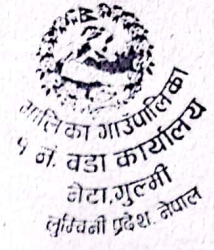 मालिका गाउँपालिका
५ नं. वडा कार्यालय
नेटा, गुल्मी
लुम्बिनी प्रदेश, नेपाल